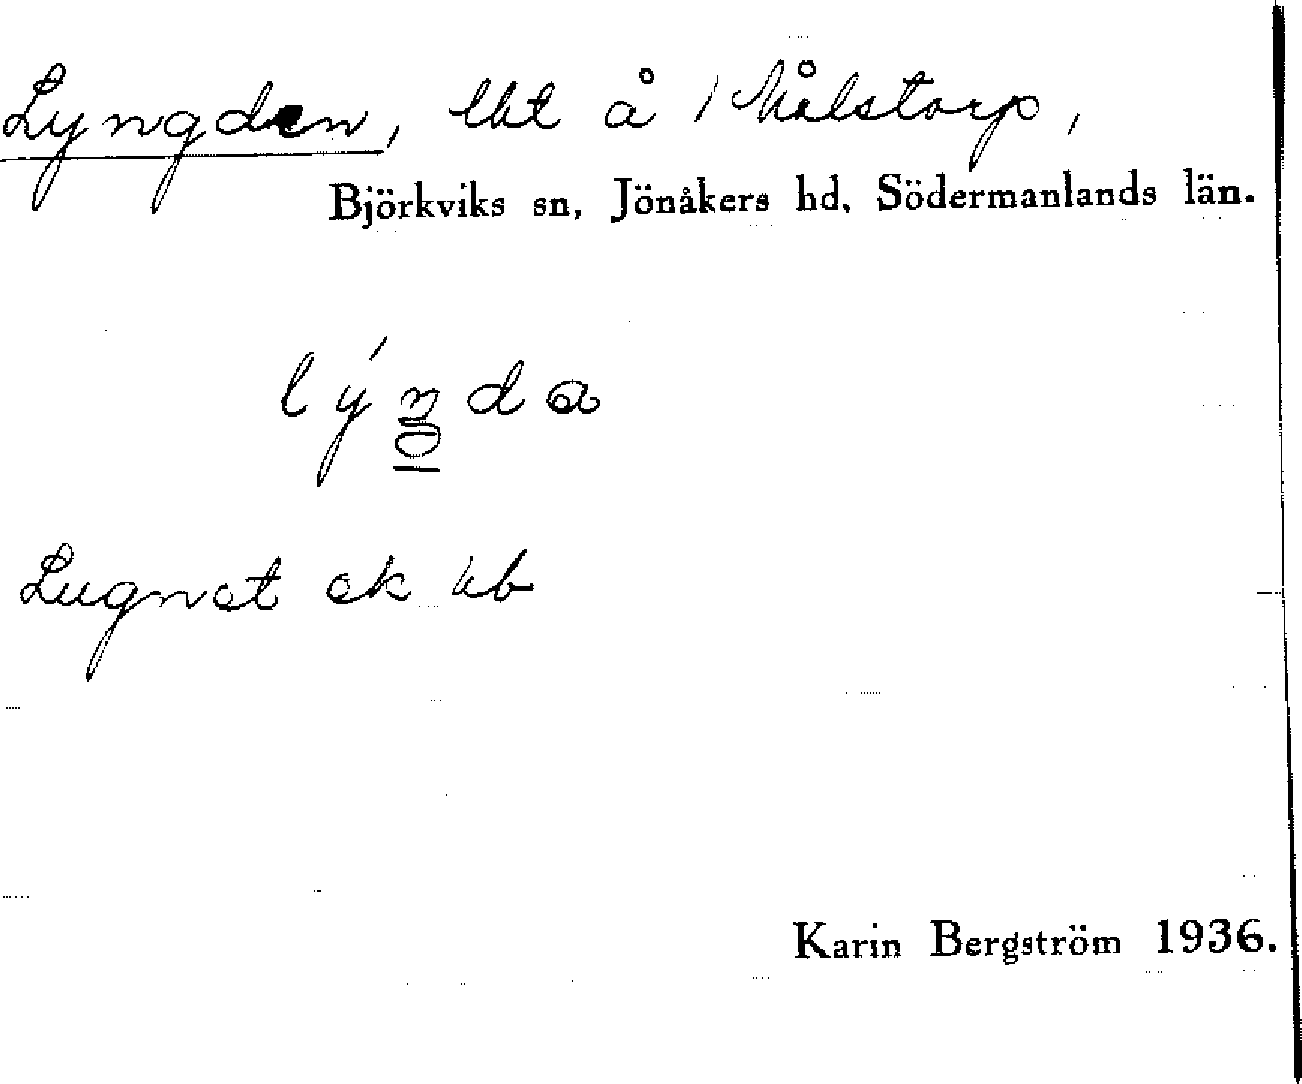 Lyngden, lht å 1 Målstorp,
Björkviks sn, Jönåkers hd, Södermanlands län.
lýnda
Lugnet ek kb
Karin Bergström 1936.